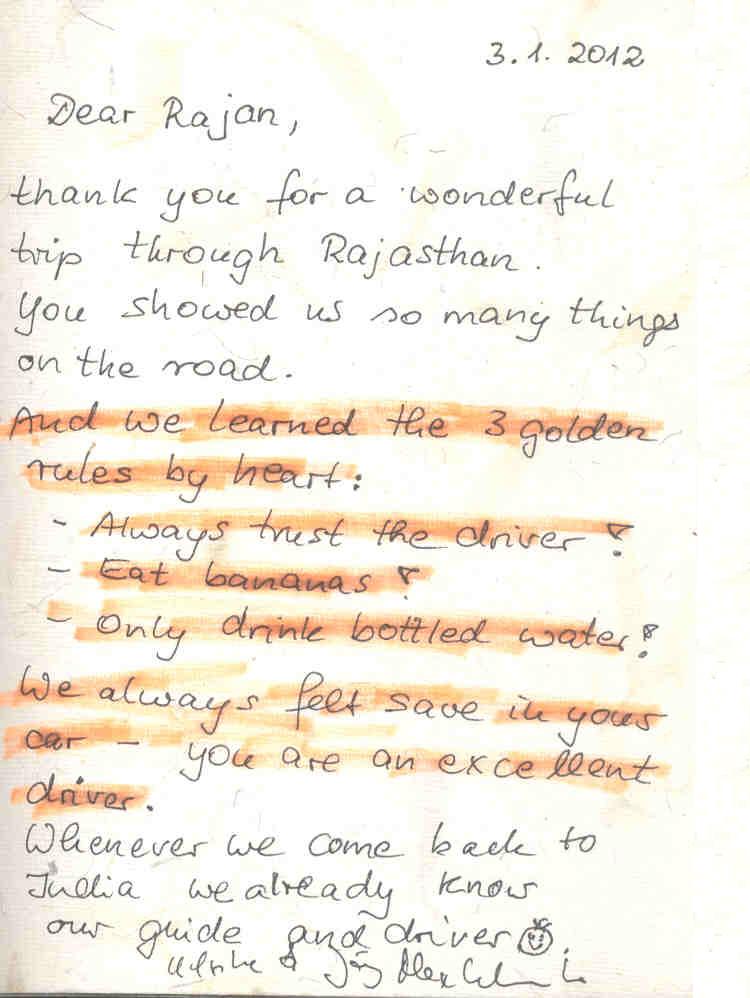 3.1.2012
Dear Rajan,
thank you for a wonderful
trip through Rajasthan.
You showed us so many things
on the road.
And we learned the 3 golden
rules by heart:
- Always trust the driver!
- Eat bananas!
- Only drink bottled water!
We always felt save in your
car - you are an excellent
driver.
Whenever we come back to
India we already know
our guide and driver ☺.
Ulrike & Jörg